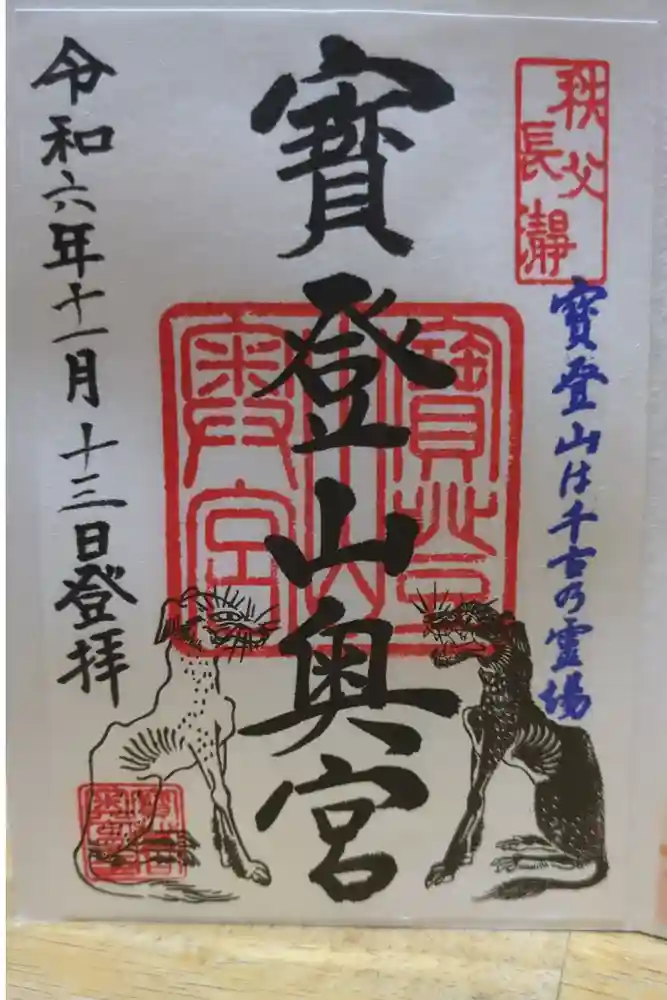 秩父
長瀞
寶登山は千古の霊場
寶登山奥宮
寶登山
奥宮
令和六年十一月十三日登拝